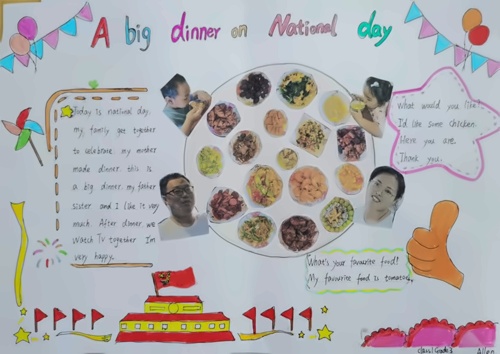 A big dinner on National day
Today is national day.
my family get together
to celebrate. my mother
made dinner. this is
a big dinner. my father
sister and I like it very
much. After dinner, we
watch TV together. Im
very happy.
What would you like?
I'd like some chicken.
Here you are.
Thank you.
What's your favourite food?
My favourite food is tomatoes.
class1 Grade3
Allen